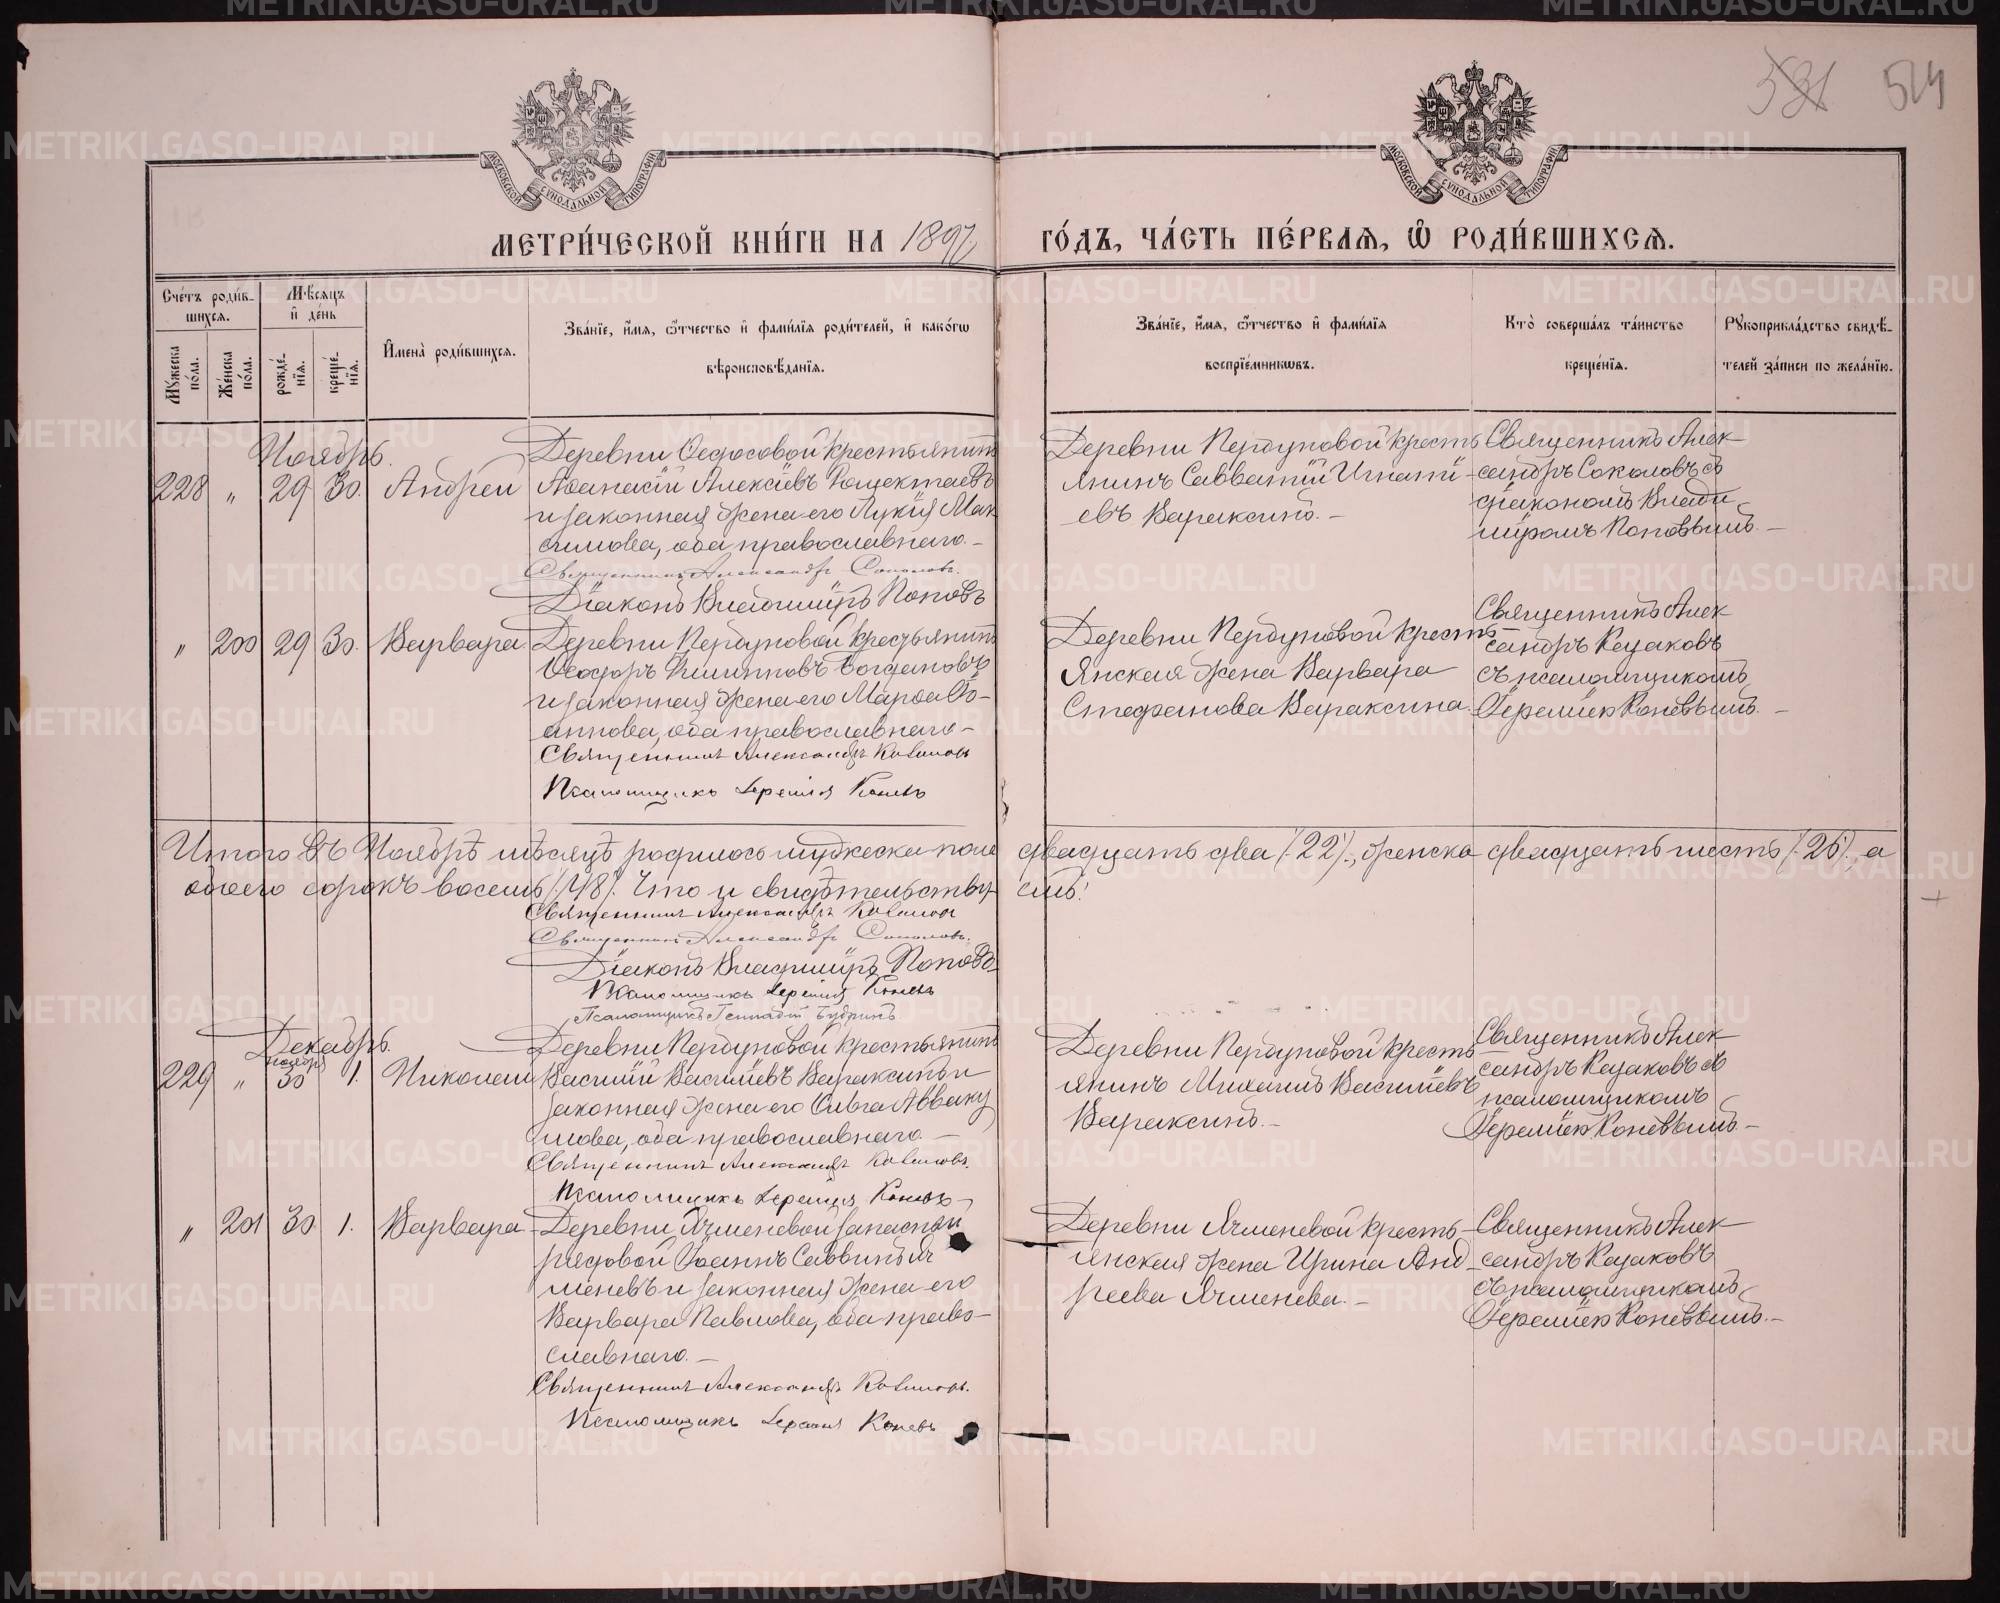 581 514
МОСКОВСКОЙ СѴНОДАЛЬНОЙ ТИПОГРАФІИ
МОСКОВСКОЙ СѴНОДАЛЬНОЙ ТИПОГРАФІИ
МЕТРИ́ЧЕСКОЙ КНИ́ГИ НА 1897 ГО́ДЪ, ЧА́СТЬ ПЕ́РВАЯ, Ѡ҆ РОДИ́ВШИХСЯ.
Сче́тъ роди́в-
шихся.
Му́жеска по́ла.
Же́нска по́ла.
Мѣ́сяцъ
и҆ де́нь
рожде́-
нїя.
креще́-
нїя.
И҆мена̀ роди́вшихся.
Зва́нїе, и҆́мя, ѻ҆́тчество и҆ фами́лїя роди́телей, и҆ како́гѡ
вѣроисповѣ́данїя.
Зва́нїе, и҆́мя, ѻ҆́тчество и҆ фами́лїя
воспрїе́мникѡвъ.
Кто̀ соверша́лъ та́инство
креще́нїя.
Рꙋкоприкла́дство свидѣ́-
телей за́писи по жела́нїю.
Ноябрь.
228 " 29 30. Андрей
Деревни Ѳедосовой крестьянинъ
Аѳанасій Алексѣевъ
и законная жена его Лукія Мак
симова, оба православнаго. –
Священникъ Александръ Соколовъ.
Діаконъ Владиміръ Поповъ
Деревни Пердуновой кресть
янинъ Савватій Игнатi-
евъ Вараксинъ. –
Священникъ Алек-
сандръ Соколовъ съ
діакономъ Влади
міромъ Поповымъ. –
" 200 29 30. Варвара
Деревни Пердуновой крестьянинъ
Ѳеодоръ Филипповъ Богдановъ
и законная жена его Марѳа Іо-
аннова, оба православнаго –
Священникъ Александръ Казаковъ
Псаломщикъ Іеремія Коневъ
Деревни Пердуновой кресть-
янская жена Варвара
Стефанова Вараксина.
Священникъ Алек-
сандръ Казаковъ
съ псаломщикомъ
Іереміею Коневымъ. –
Итого въ Ноябрѣ мѣсяцѣ родилось мужеска пола двадцать два /. 22 /., женска двадцать шесть /. 26 /., а
обоего сорокъ восемь /. 48 /. Что и свидѣтельству емъ:
Священникъ Александръ Казаковъ
Священникъ Александръ Соколовъ.
Діаконъ Владиміръ Поповъ
Псаломщикъ Іеремія Коневъ
Псаломщикъ Геннадій Будринъ
Декабрь.
229 " ноября 30 1. Николай
Деревни Пердуновой крестьянинъ
Василій Васильевъ Вараксинъ и
законная жена его Ольга Авваку
мова, оба православнаго. –
Священникъ Александръ Казаковъ.
Псаломщикъ Іеремія Коневъ
Деревни Пердуновой кресть
янинъ Михаилъ Васильевъ
Вараксинъ. –
Священникъ Алек-
сандръ Казаковъ съ
псаломщикомъ
Іереміею Коневымъ. –
" 201 30 1. Варвара
Деревни Ячменевой запасный
рядовой Іоаннъ Саввинъ Яч
меневъ и законная жена его
Варвара Павлова, оба право-
славнаго. –
Священникъ Александръ Казаковъ.
Псаломщикъ Іеремія Коневъ
Деревни Ячменевой кресть-
янская жена Ирина Анд-
реева Ячменева. –
Священникъ Алек-
сандръ Казаковъ
съ псаломщикомъ
Іереміею Коневымъ. –
METRIKI.GASO-URAL.RU